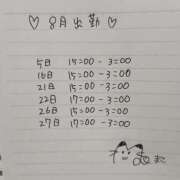 ♡ 8月出勤 ♡
5日 15:00 - 3:00
16日 15:00 - 3:00
21日 15:00 - 3:00
22日 17:00 - 3:00
26日 15:00 - 3:00
27日 17:00 - 3:00